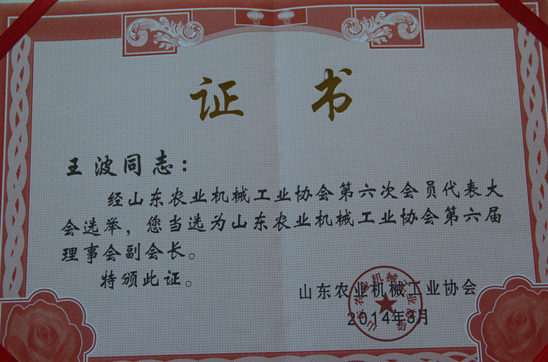 证 书
王波同志：
经山东农业机械工业协会第六次会员代表大
会选举，您当选为山东农业机械工业协会第六届
理事会副会长。
特颁此证。
山东农业机械工业协会
2014年3月